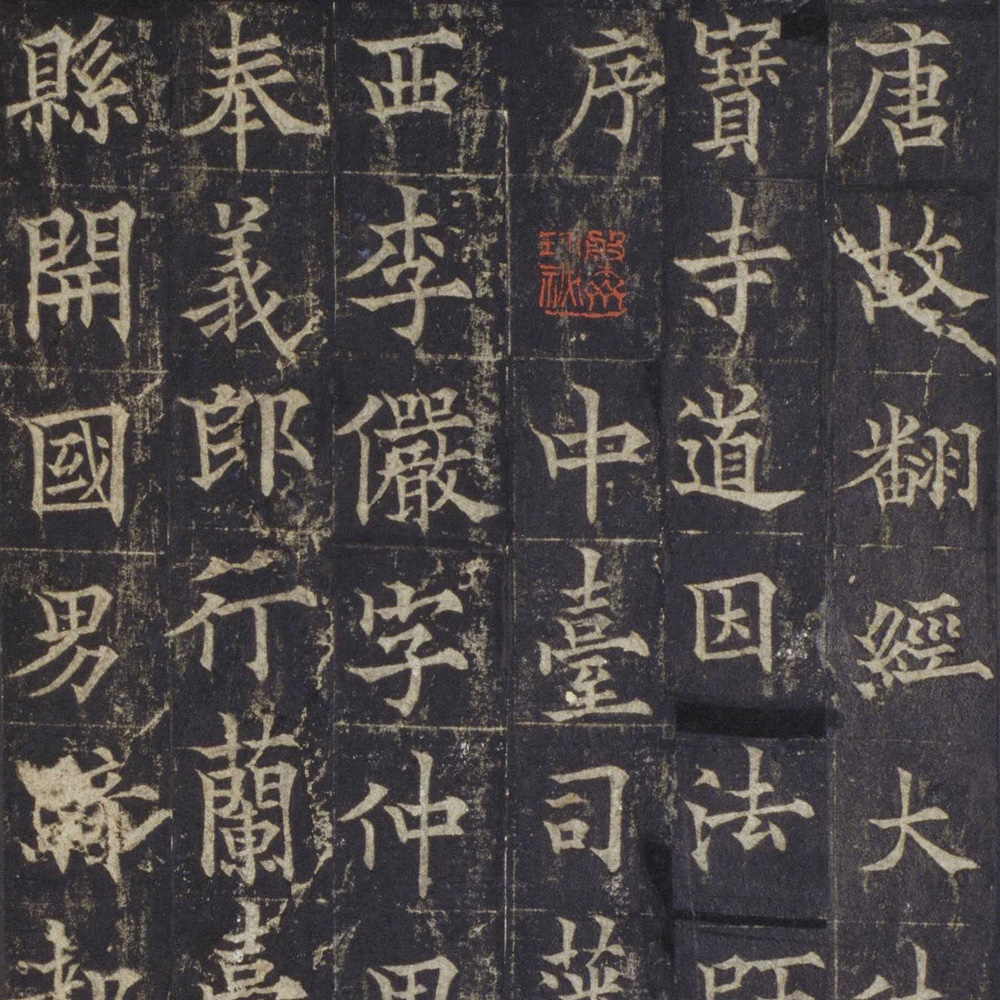 唐故翻經大
寶寺道因法
序中臺司
西李儼字仲
奉義郎行蘭臺
縣開國男